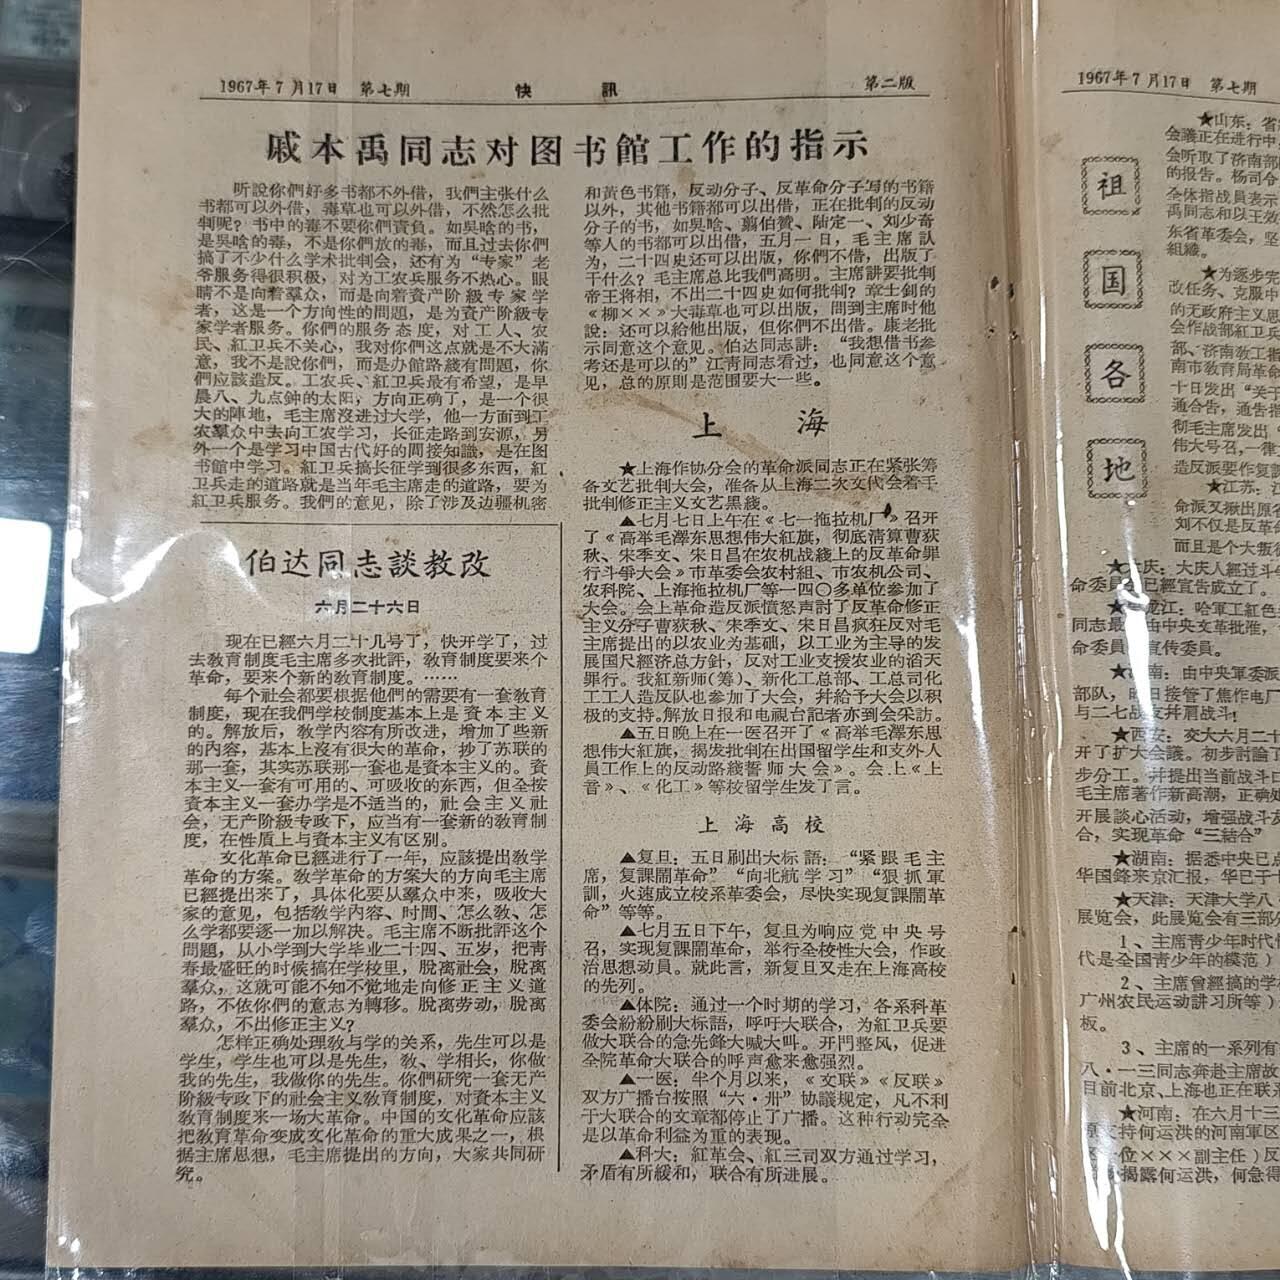 1967年7月17日 第七期 快訊 第二版
戚本禹同志对图书館工作的指示
听說你們好多书都不外借，我們主张什么
书都可以外借，毒草也可以外借，不然怎么批
判呢？书中的毒不要你們責負。如吳晗的书，
是吳晗的毒，不是你們放的毒，而且过去你們
搞了不少什么学术批判会，还有为“专家”老
爷服务得很积极，对为工农兵服务不热心。眼
睛不是向着羣众，而是向着資产阶級专家学
者，这是一个方向性的問題，是为資产阶級专
家学者服务。你們的服务态度，对工人、农
民、紅卫兵不关心，我对你們这点就是不大滿
意，我不是說你們，而是办館路綫有問題，你
們应該造反。工农兵、紅卫兵最有希望，是早
晨八、九点鈡的太阳，方向正确了，是一个很
大的陣地，毛主席沒进过大学，他一方面到工
农羣众中去向工农学习，长征走路到安源，另
外一个是学习中国古代好的間接知識，是在图
书館中学习。紅卫兵搞长征学到很多东西，紅
卫兵走的道路就是当年毛主席走的道路，要为
紅卫兵服务。我們的意见，除了涉及边疆机密
和黄色书籍，反动分子、反革命分子写的书籍
以外，其他书籍都可以出借，正在批判的反动
分子的书，如吳晗、翦伯贊、陆定一、刘少奇
等人的书都可以出借，五月一日，毛主席认
为，二十四史还可以出版，你們不借，出版了
干什么？毛主席总比我們高明。主席讲要批判
帝王将相，不出二十四史如何批判？章士釗的
《柳××》大毒草也可以出版，問到主席时他
說：还可以給他出版，但你們不出借。康老批
示同意这个意见。伯达同志講：“我想借书参
考还是可以的”江靑同志看过，也同意这个意
见，总的原則是范围要大一些。
伯达同志談教改
六月二十六日
现在已經六月二十几号了，快开学了，过
去教育制度毛主席多次批評，教育制度要来个
革命，要来个新的教育制度。……
每个社会都要根据他們的需要有一套教育
制度，现在我們学校制度基本上是資本主义
的。解放后，教学内容有所改进，增加了些新
的内容，基本上沒有很大的革命，抄了苏联的
那一套，其实苏联那一套也是資本主义的。資
本主义一套有可用的、可吸收的东西，但全按
資本主义一套办学是不适当的，社会主义社
会，无产阶級专政下，应当有一套新的教育制
度，在性质上与資本主义有区别。
文化革命已經进行了一年，应該提出教学
革命的方案。教学革命的方案大的方向毛主席
已經提出来了，具体化要从羣众中来，吸收大
家的意见，包括教学内容、时間、怎么教、怎
么学都要逐一加以解决。毛主席不断批評这个
問題，从小学到大学毕业二十四、五岁，把靑
春最盛旺的时候搞在学校里，脫离社会，脫离
羣众，这就可能不知不觉地走向修正主义道
路，不依你們的意志为轉移。脫离劳动，脫离
羣众，不出修正主义？
怎样正确处理教与学的关系，先生可以是
学生，学生也可以是先生，教、学相长，你做
我的先生，我做你的先生。你們研究一套无产
阶級专政下的社会主义教育制度，对資本主义
教育制度来一場大革命。中国的文化革命应該
把教育革命变成文化革命的重大成果之一，根
据主席思想，毛主席提出的方向，大家共同研
究。
上海
★上海作协分会的革命派同志正在紧张筹
备文艺批判大会，准备从上海二次文代会着手
批判修正主义文艺黑綫。
▲七月七日上午在《七一拖拉机厂》召开
了《高举毛澤东思想伟大紅旗，彻底清算曹荻
秋、宋季文、宋日昌在农机战綫上的反革命罪
行斗爭大会》市革委会农村組、市农机公司、
农科院、上海拖拉机厂等一四〇多单位参加了
大会。会上革命造反派愤怒声討了反革命修正
主义分子曹荻秋、宋季文、宋日昌疯狂反对毛
主席提出的以农业为基础，以工业为主导的发
展国民經济总方針，反对工业支援农业的滔天
罪行。我紅新师（筹）、新化工总部、工总司化
工工人造反队也参加了大会，幷給予大会以积
极的支持。解放日报和电视台記者亦到会采訪。
▲五日晚上在一医召开了《高举毛澤东思
想伟大紅旗，揭发批判在出国留学生和支外人
員工作上的反动路綫誓师大会》。会上《上
音》、《化工》等校留学生发了言。
上海高校
▲复旦：五日刷出大标語：“紧跟毛主
席，复課鬧革命”“向北航学习”“狠抓軍
訓，火速成立校系革委会，尽快实现复課鬧革
命”等等。
▲七月五日下午，复旦为响应党中央号
召，实现复課鬧革命，举行全校性大会，作政
治思想动員。就此言，新复旦又走在上海高校
的先列。
▲体院：通过一个时期的学习，各系科革
委会紛紛刷大标語，呼吁大联合，为紅卫兵要
做大联合的急先鋒大喊大叫。开門整风，促进
全院革命大联合的呼声愈来愈强烈。
▲一医：半个月以来，《文联》《反联》
双方广播台按照“六·卅”协議规定，凡不利
于大联合的文章都停止了广播。这种行动完全
是以革命利益为重的表现。
▲科大：紅革会、紅三司双方通过学习，
矛盾有所緩和，联合有所进展。
1967年7月17日 第七期
祖国各地
★山东：省
会議正在进行中，
会听取了济南部
的报告。杨司令
全体指战員表示
禹同志和以王效
东省革委会，坚
組織。
★为逐步完
改任务、克服中
的无政府主义思
会作战部紅卫兵
部、济南敎工指
南市教育局革命
十日发出“关于
通合告，通告指
彻毛主席发出“
伟大号召，一律
造反派要作复課
★江苏：江
命派又揪出原省
刘不仅是反革命
而且是个大叛徒
大庆：大庆人經过斗爭
命委員会已經宣告成立了。
龙江：哈軍工紅色
同志最 由中央文革批准，
命委員 宣传委員。
南：由中央軍委派
部队，昨日接管了焦作电厂
与二七战友幷肩战斗！
★西安：交大六月二十
开了扩大会議。初步討論了
步分工。幷提出当前战斗口
毛主席著作新高潮，正确处
开展談心活动，增强战斗友
合，实现革命“三結合”
★湖南：据悉中央已点
华国鋒来京汇报，华已于十
★天津：天津大学八
展览会，此展览会有三部分
1、主席靑少年时代
代是全国靑少年的模范）
2、主席曾經搞的学校
广州农民运动講习所等）
板。
3、主席的一系列有
八·一三同志奔赴主席故
目前北京、上海也正在联系
★河南：在六月十三
支持何运洪的河南軍区
位×××副主任）反
揭露何运洪，何急得